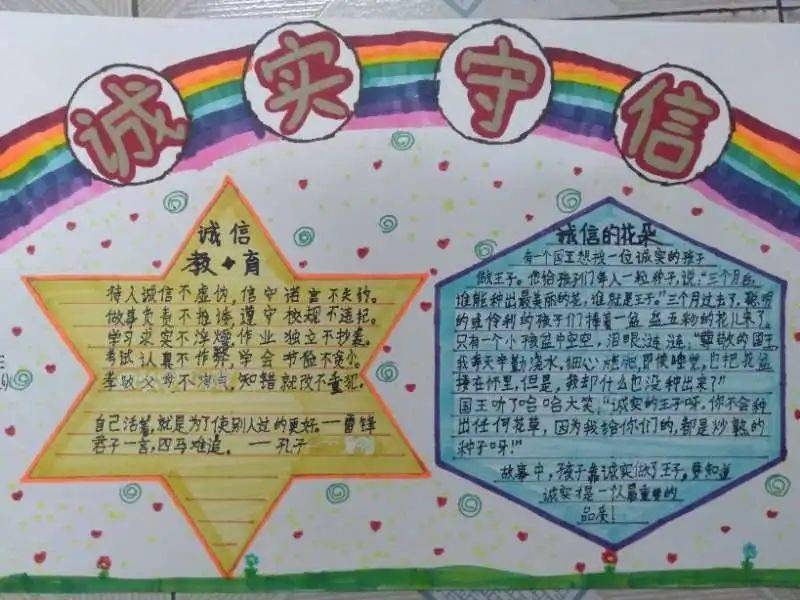 诚实守信
诚信
教育
待人诚信不虚伪,信守诺言不失约。
做事负责不推诿,遵守校规不违纪。
学习求实不浮燥,作业独立不抄袭。
考试认真不作弊,学会节俭不贪小。
孝敬父母不,知错就改不重犯。
自己活着,就是为了使别人过的更好。——雷锋
君子一言,四马难追。——孔子
诚信的花朵
有一个国王想找一位诚实的孩子
做王子。他给孩子们每人一粒种子,说:“三个月后,
谁能种出最美丽的花,谁就是王子。”三个月过去了,聪明
的伶俐的孩子们捧着一盆盆五粉的花儿来了。
只有一个小孩盆中空空,泪眼涟涟,“尊敬的国王
我每天辛勤浇水,细心施肥,即使睡觉,也把花盆
搂在怀里,但是,我却什么也没种出来?”
国王听了哈哈大笑,“诚实的王子呀,你不会种
出任何花草,因为我给你们的,都是炒熟的
种子呀!”
故事中,孩子靠诚实做了王子。要知道
诚实才是一个人最重要的
品质!